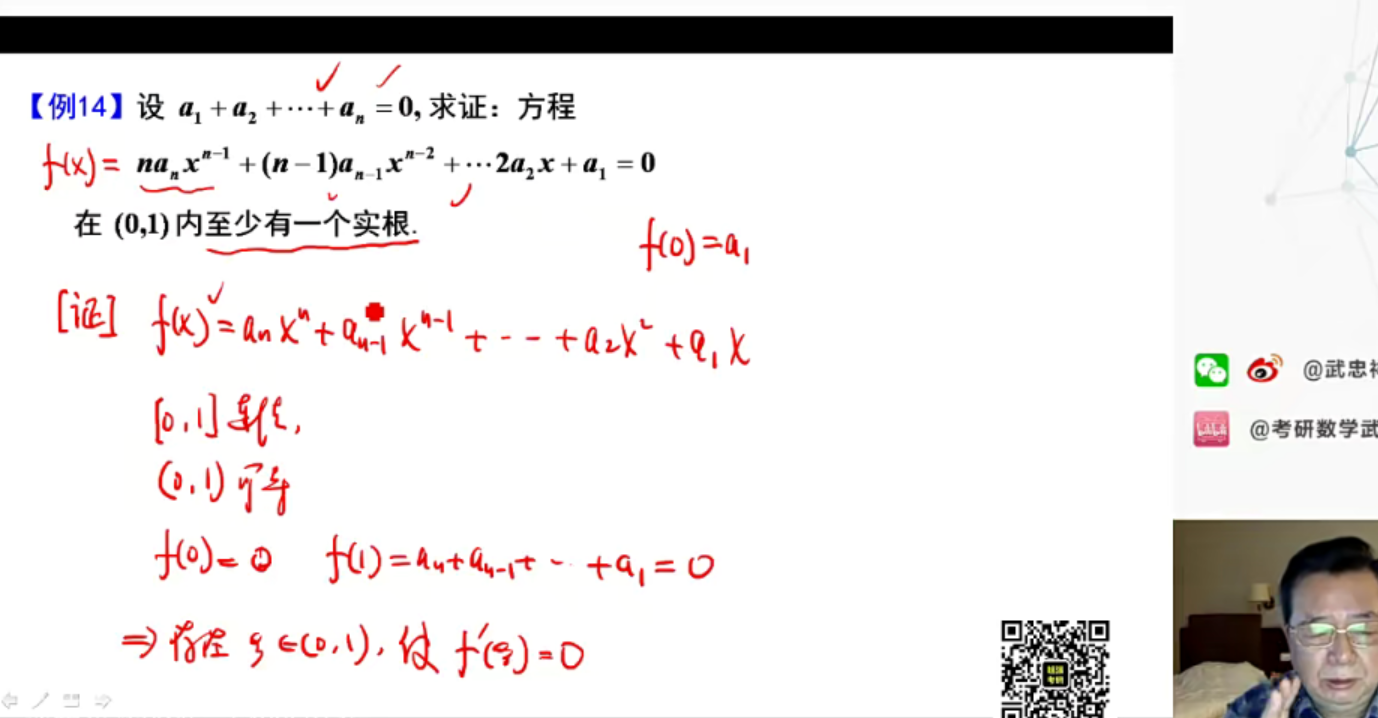 【例14】设 a₁ + a₂ + ⋯ + aₙ = 0, 求证：方程
f(x) = naₙxⁿ⁻¹ + (n − 1)aₙ₋₁xⁿ⁻² + ⋯ 2a₂x + a₁ = 0
在 (0,1) 内至少有一个实根.
f(0) = a₁
[证] f(x) = aₙxⁿ + aₙ₋₁xⁿ⁻¹ + ⋯ + a₂x² + a₁x
[0,1] 连续,
(0,1) 可导
f(0) = 0 f(1) = aₙ + aₙ₋₁ + ⋯ + a₁ = 0
⇒ 存在 ξ ∈ (0,1), 使 f′(ξ) = 0
@武忠
@考研数学武